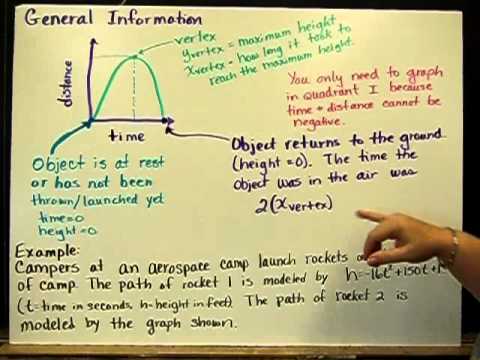 General Information
vertex
yvertex = maximum height
xvertex = how long it took to
reach the maximum height.
distance
time
You only need to graph
in quadrant I because
time + distance cannot be
negative.
Object is at rest
or has not been
thrown/launched yet
time=0
height=0
Object returns to the ground
(height=0). The time the
object was in the air was
2(xvertex)
Example:
Campers at an aerospace camp launch rockets
of camp. The path of rocket 1 is modeled by h=-16t²+150t+
(t=time in seconds, h=height in feet). The path of rocket 2 is
modeled by the graph shown.